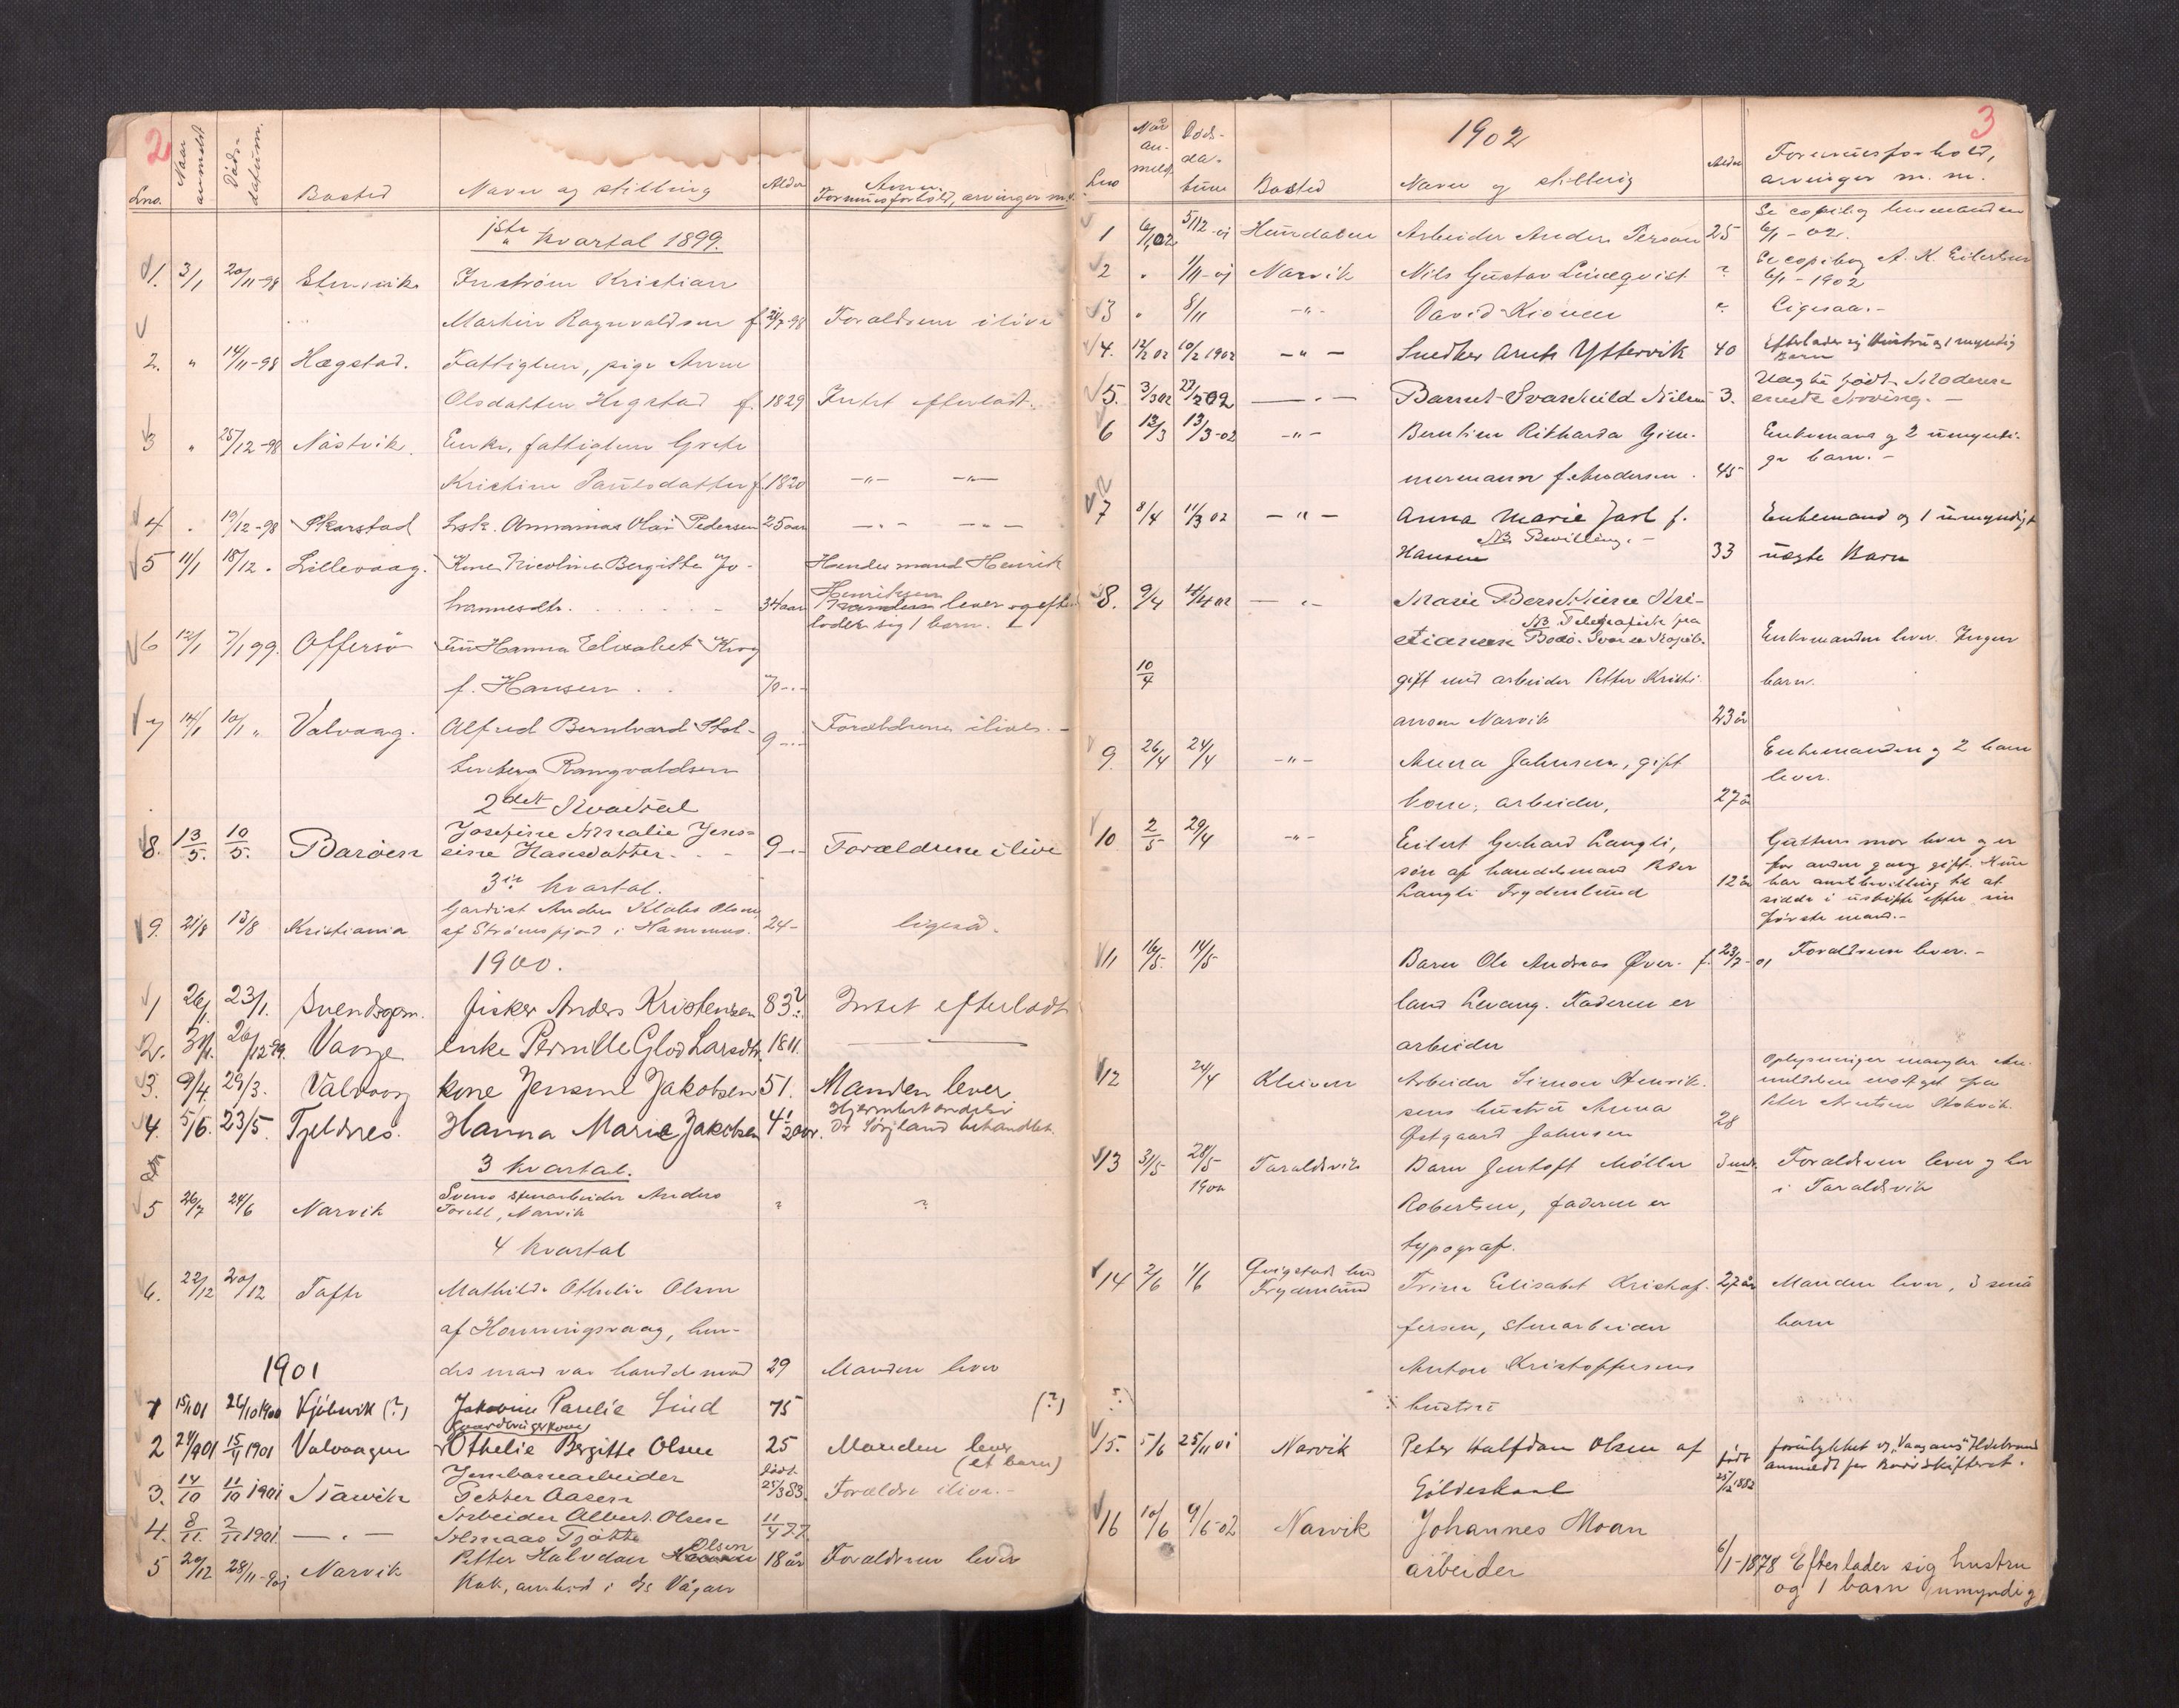 2
Lno. Naar anmeldt Döds-datum. Bosted Navn og stilling Alder Anm. Formuesforhold, arvinger m.v.
1ste kvartal 1899.
1. 3/1 20/11-98 Kristian
Martin Ragnvaldsen f. 21/7-98 Forældrene ilive
2. " 14/11-98 Hægstad. Fattiglem, pige Anne
Olsdatter Hegstad f. 1829 Intet efterladt.
3 " 25/12-98 Nästvik. Enke, fattiglem Grete
Kristine Paulsdatter f. 1820 -"- -"-
4 . 19/12-98 Skarstad Olai Pedersen 25 aar -"- -"-
5 11/1 18/12 . Lillevaag. Kone Nicoline Bergitte Jo-
hannesdtr. 34 aar Hendes mand Henrik
Henriksen lever og efter-
lader sig 1 barn.
6 12/1 7/1 99. Offersö Fru Hanna Elisabet Krog
f. Hansen . . 70 -.-
7 14/1 10/1 " Valvaag. Alfred Bernhard Stol-
tenberg Rangvaldsen 9 -.- Forældrene ilive. -
2det Kvartal
8. 13/5. 10/5. Baröen Josefine Amalie Jens-
sine Hansdatter. - 9 -.- Forældrene ilive
3je kvartal.
9. 21/8 13/8 Kristiania Gardist Anders Klabo Olsen
af Strømsfjord i Hammerø. 24 - ligeså.
1900.
1 26/1. 23/1. Svendsgam. fisker Anders Kristensen 83? Intet efterladt
2. 30/1. 26/12-99. Vaage enke Pernille Glod Larsdtr. 1811. ———
3. 9/4. 29/3. Valvaag kone Jensine Jakobsen 51. Manden lever
4. 5/6. 23/5. Tjeldnes. Hanna Marie Jakobsen 4 1/2 aar. Hjernebetændelse
Dr behandlet.
3 kvartal.
5 26/7 24/6 Narvik Svensk stenarbeider Anders
Torell, Narvik " "
4 kvartal
6. 22/12 20/12 Tofte Mathilde Othelie Olsen
af Honningsvaag, hen-
des mand var handelsmand 29 Manden lever
1901
1 15/1 01 26/10 1900 Kjölsvik (?) Jakovine Parelie Lind 75 (?)
2 24/9 01 15/4 1901 Valvaagen Gaardbrugerkone
Othelie Bergitte Olsen 25 Manden lever
(et barn)
3. 14/10 11/10 1901 Jernbanearbeider
Petter Aasen født 25/3 83. Forældre ilive. -
4. 8/11. 2/11 1901 — " — Arbeider Albert Olsen
Tjøtta 11/4 77
5 20/12 28/11-901 Narvik Petter Halvdan Olsen 18 år Forældrene lever
Kok, ombord i Ds Vågan
3
1902
Lno Når an-meldt. Döds-da-tum Bosted Navn og stilling Alder Formuesforhold,
arvinger m. m.
1 6/1 02. 5/12-01 Hundalen Arbeider Anders Person 25 Se copibog
6/1 - 02.
2 " 1/11-01 Narvik Nils Gustav Lindqvist ? Se copibog A. K. Eilertsen
6/1 - 1902
3 " 8/11 -"- David Kionen ? Ligesaa. -
4. 12/2 02 10/2 1902 -"- Snedker Arnts Yttervik 40 Efterlader sig hustru og 1 myndig
Barn
5. 3/3 02 27/2 02 -"- Barnet Svanhild Nilsen 3. Uægte født. Moderen
eneste Arving. -
6 12/3 13/3-02 -"- Berntine Rikharda Zim-
mermann f. Andersen . 45 Enkemand og 2 umyndi-
ge barn. -
7 8/4 11/3 02 -"- Anna Marie Jarl f.
NB. Bevilling. -
Hansen 33 Enkemand og 1 umyndigt
uægte Barn
8. 9/4 02 -"- Marie Kri-
NB Telegrafisk fra
stiansen Bodö.
10/4 gift med arbeider Petter Kristi-
ansen Narvik 23 år Enkemanden lever. Ingen
barn.
9. 26/4 24/4 -"- Anna Johnsen, gift
kone, arbeider, 27 år Enkemanden og 2 barn
lever.
10 2/5 29/4 -"- Eilert Gerhard Langli,
søn af handelsmand Peter
Langli Frydenlund 12 år Guttens mor lever og er
for anden gang gift. Hun
har amtsbevilling til at
sidde i uskifte efter sin
første mand. -
11 16/5. 14/5 Barn Ole Andreas Øver- f. 23/7 - 01 Forældrene lever. -
land Levang. Faderen er
arbeider
12 24/4 Kleiven Arbeider Simon Henrik-
sens hustru Anna
Østgaard Johnsen 28 Oplysninger mangler An-
meldelsen modtaget fra
Peter
13 31/5 28/5 1902 Taraldsvik Barn Jentoft Möller
Robertsen, faderen er
typograf. 3 mdr. Forældrene lever og bor
i Taraldsvik
14 2/6 1/6 Qvigstad
Frydenlund Trine Elisabet Kristof-
fersen, stenarbeider
Anton Kristoffersens
hustru 27 år Manden lever, 3 små
barn
15. 5/6 25/11 01 Narvik Peter Halfdan Olsen af
Gildeskaal født 25/12 1882 forulykket
anmeldt for Bodö Skifteret.
16 10/6 9/6-02 Narvik Johannes Moan
arbeider 6/1-1878 Efterlader sig hustru
og 1 barn umyndig